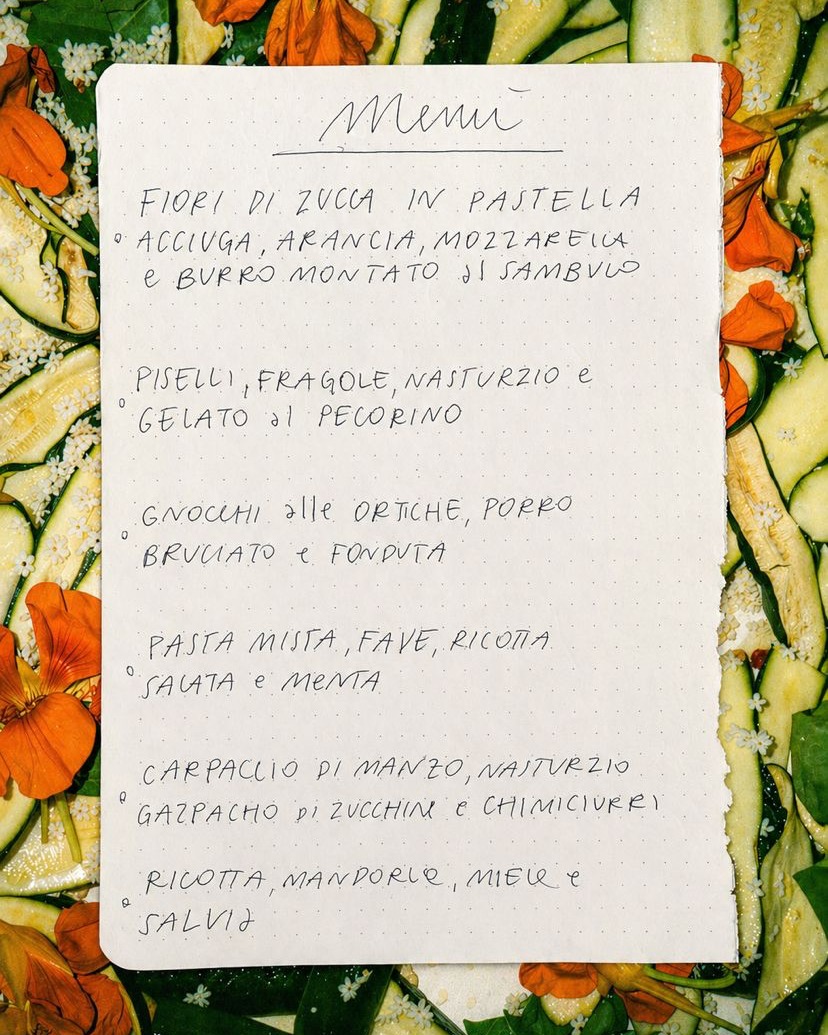 Menù
FIORI DI ZUCCA IN PASTELLA
ACCIUGA, ARANCIA, MOZZARELLA
e BURRO MONTATO al SAMBUCO
PISELLI, FRAGOLE, NASTURZIO e
GELATO al PECORINO
GNOCCHI alle ORTICHE, PORRO
BRUCIATO e FONDUTA
PASTA MISTA, FAVE, RICOTTA
SALATA e MENTA
CARPACCIO DI MANZO, NASTURZIO
GAZPACHO DI ZUCCHINE e CHIMICIURRI
RICOTTA, MANDORLE, MIELE e
SALVIA